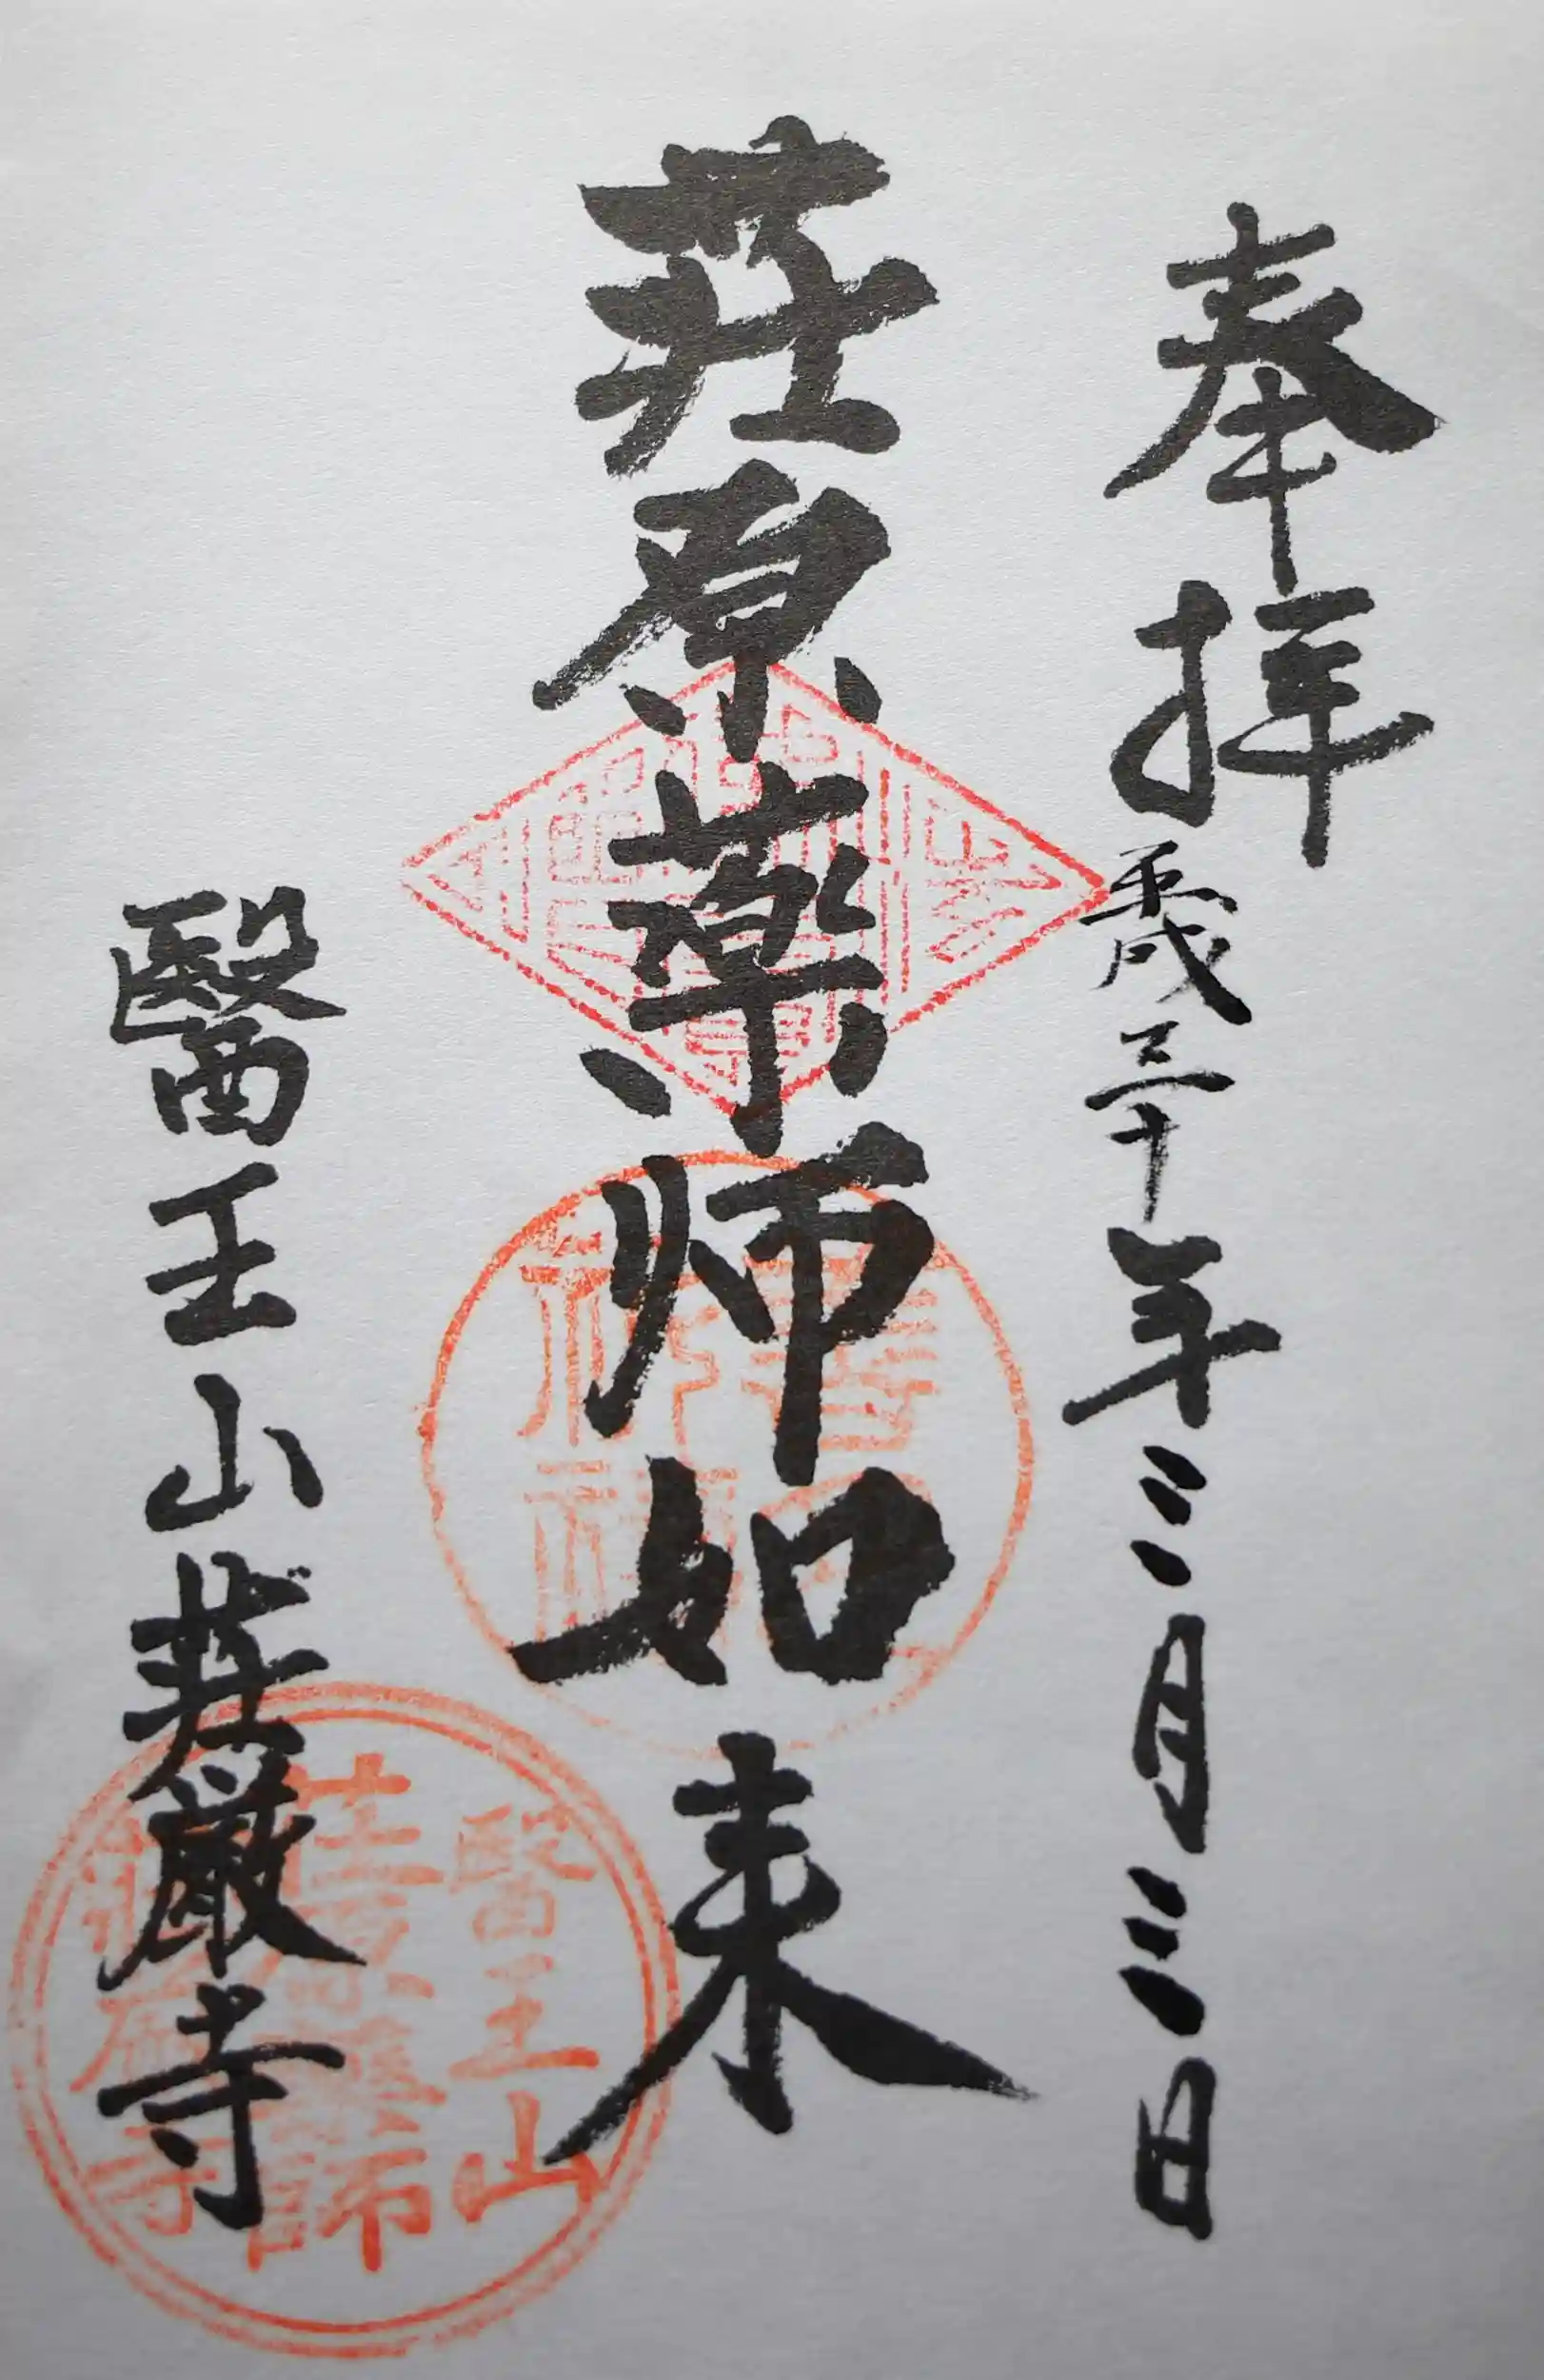 奉拝 平成三十年三月三日
荘原薬师如来
醫王山荘厳寺
醫王山
荘原薬師
荘厳寺